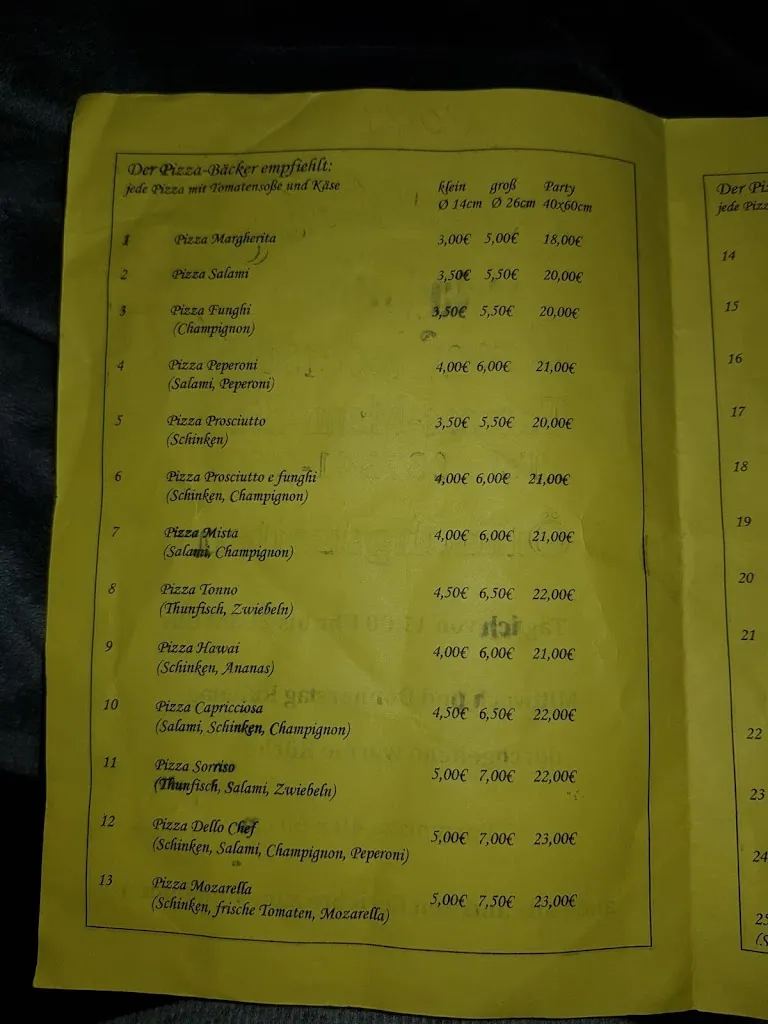 Der Pizza-Bäcker empfiehlt:
jede Pizza mit Tomatensoße und Käse
klein groß Party
Ø 14cm Ø 26cm 40x60cm
1 Pizza Margherita 3,00€ 5,00€ 18,00€
2 Pizza Salami 3,50€ 5,50€ 20,00€
3 Pizza Funghi 3,50€ 5,50€ 20,00€
(Champignon)
4 Pizza Peperoni 4,00€ 6,00€ 21,00€
(Salami, Peperoni)
5 Pizza Prosciutto 3,50€ 5,50€ 20,00€
(Schinken)
6 Pizza Prosciutto e funghi 4,00€ 6,00€ 21,00€
(Schinken, Champignon)
7 Pizza Mista 4,00€ 6,00€ 21,00€
(Salami, Champignon)
8 Pizza Tonno 4,50€ 6,50€ 22,00€
(Thunfisch, Zwiebeln)
9 Pizza Hawai 4,00€ 6,00€ 21,00€
(Schinken, Ananas)
10 Pizza Capricciosa 4,50€ 6,50€ 22,00€
(Salami, Schinken, Champignon)
11 Pizza Sorriso 5,00€ 7,00€ 22,00€
(Thunfisch, Salami, Zwiebeln)
12 Pizza Dello Chef 5,00€ 7,00€ 23,00€
(Schinken, Salami, Champignon, Peperoni)
13 Pizza Mozarella 5,00€ 7,50€ 23,00€
(Schinken, frische Tomaten, Mozarella)
Der Piz
jede Pizz
14
15
16
17
18
19
20
21
22
23
24